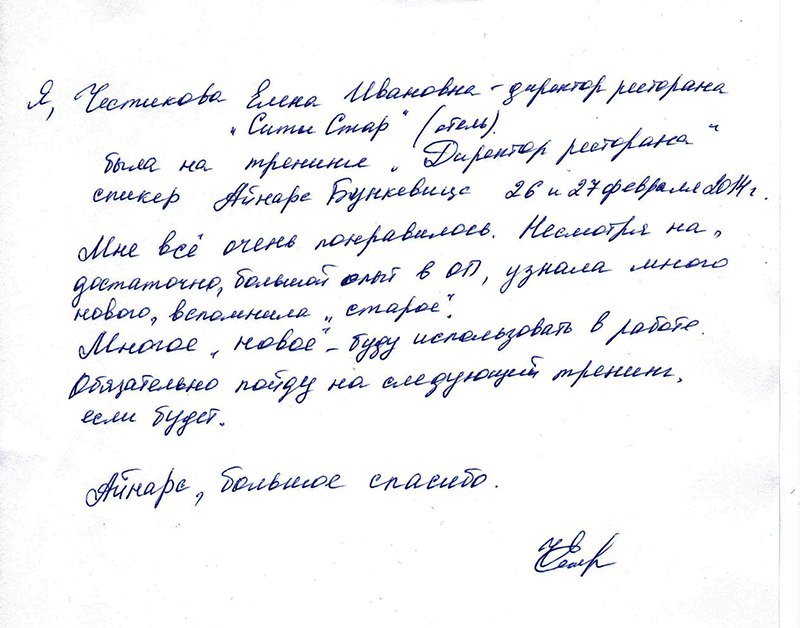 Я, Честикова Елена Ивановна - директор ресторана
„Сити Стар" (отель).
была на тренинге „Директор ресторана"
спикер Айнарс Бункевицс 26 и 27 февраля 2014 г.
Мне всё очень понравилось. Несмотря на,
достаточно, большой опыт в ОП, узнала много
нового, вспомнила „старое".
Многое „новое" - буду использовать в работе.
Обязательно пойду на следующий тренинг,
если будет.
Айнарс, большое спасибо.